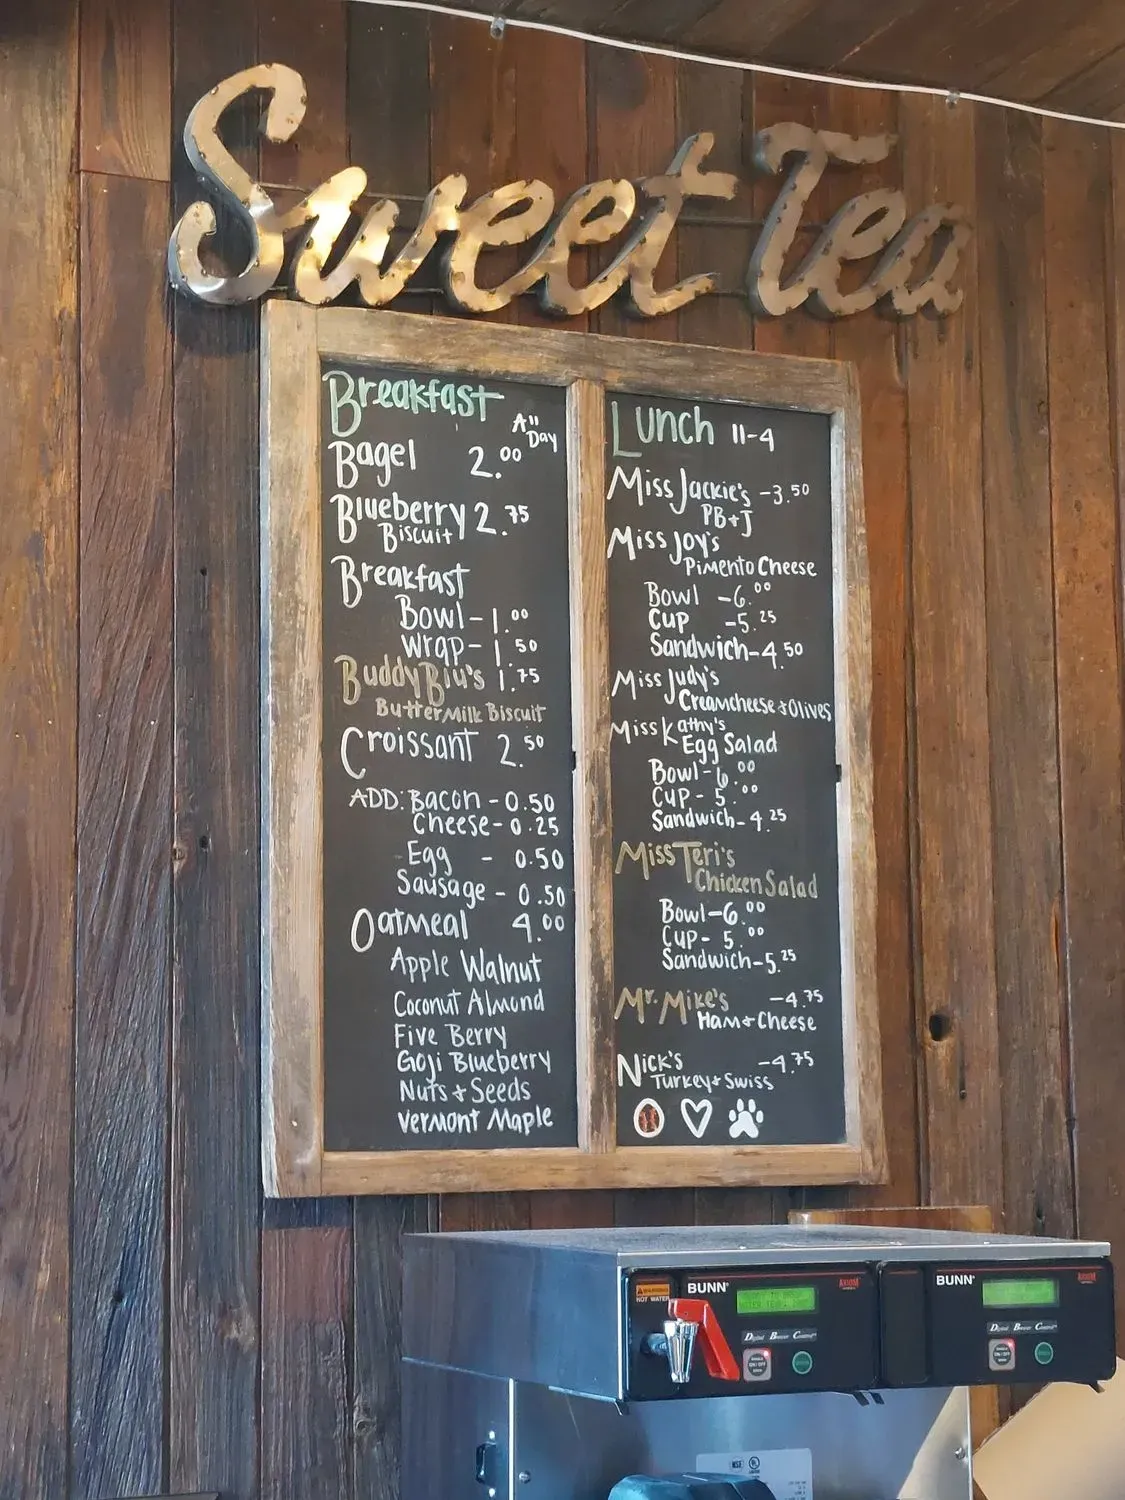 Sweet Tea
Breakfast
All
Day
Bagel 2.00
Blueberry 2.75
Biscuit
Breakfast
Bowl - 1.00
Wrap - 1.50
BuddyBlu's 1.75
Buttermilk Biscuit
Croissant 2.50
ADD: Bacon - 0.50
Cheese - 0.25
Egg - 0.50
Sausage - 0.50
Oatmeal 4.00
Apple Walnut
Coconut Almond
Five Berry
Goji Blueberry
Nuts + Seeds
Vermont Maple
Lunch 11-4
Miss Jackie's - 3.50
PB+J
Miss Joy's
Pimento Cheese
Bowl - 6.00
Cup - 5.25
Sandwich - 4.50
Miss Judy's
Creamcheese + Olives
Miss Kathy's
Egg Salad
Bowl - 6.00
Cup - 5.00
Sandwich - 4.25
Miss Teri's
Chicken Salad
Bowl - 6.00
Cup - 5.00
Sandwich - 5.25
Mr. Mike's - 4.75
Ham + Cheese
Nick's - 4.75
Turkey + Swiss
WARNING
HOT WATER
BUNN
AXIOM
Digital Brewer Control
ON/OFF
BUNN
AXIOM
Digital Brewer Control
ON/OFF
NSF